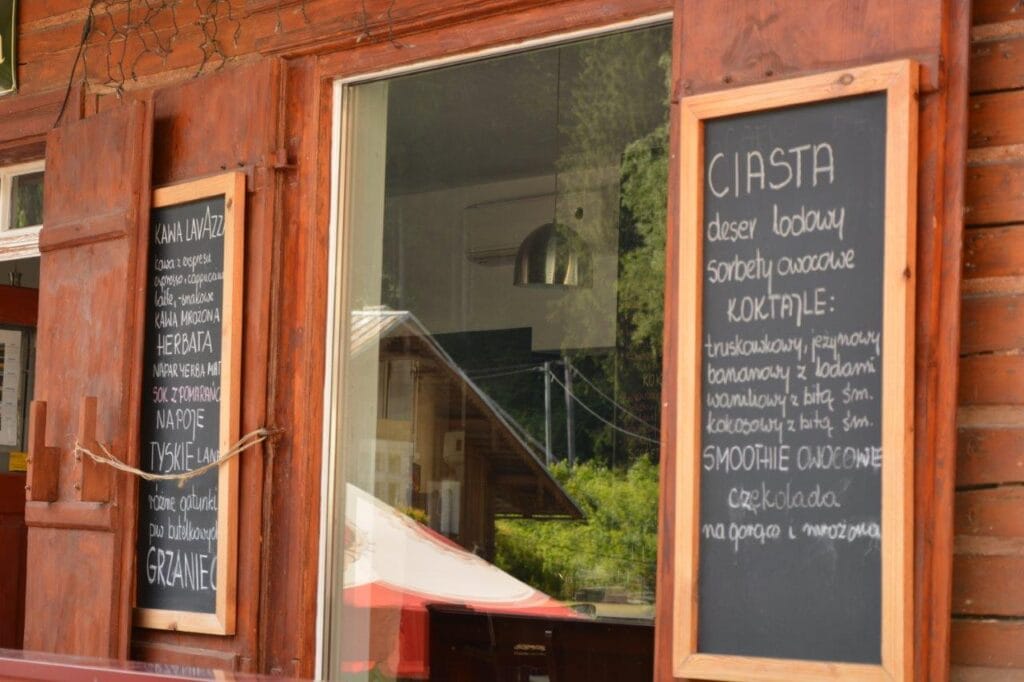 KAWA LAVAZZ
kawa z expresu
espresso, cappuccino
latte, - smakowe
KAWA MROŻONA
HERBATA
NAPAR YERBA MAT
SOK Z POMARAŃC
NAPOJE
TYSKIE LANE
różne gatunki
piw butelkowych
GRZANIEC
CIASTA
deser lodowy
sorbety owocowe
KOKTAJLE:
truskawkowy, jeżynowy
bananowy z lodami
waniliowy z bitą śm.
kokosowy z bitą śm.
SMOOTHIE OWOCOWE
czekolada
na gorąco i mrożona